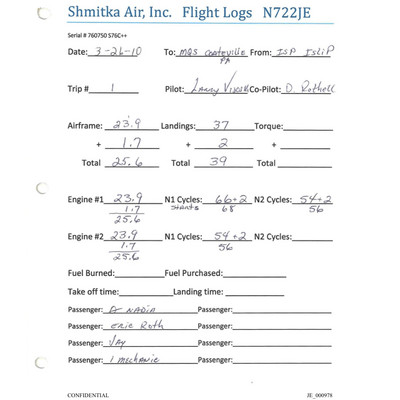 Shmitka Air, Inc. Flight Logs N722JE
Serial # 760750 S76C++
Date: 3-26-10 To: MQS Coatesville PA From: ISP Islip
Trip # 1 Pilot: Larry Visoski Co-Pilot: D. Rothell
Airframe: 23.9 Landings: 37 Torque:
+ 1.7 + 2 +
Total 25.6 Total 39 Total
Engine #1 23.9 N1 Cycles: 66+2 N2 Cycles: 54+2
1.7 Starts 68 56
25.6
Engine #2 23.9 N1 Cycles: 54+2 N2 Cycles:
1.7 56
25.6
Fuel Burned: Fuel Purchased:
Take off time: Landing time:
Passenger: Nadia
Passenger: Eric Roth
Passenger: Jay
Passenger: 1 mechanic
CONFIDENTIAL JE_000978